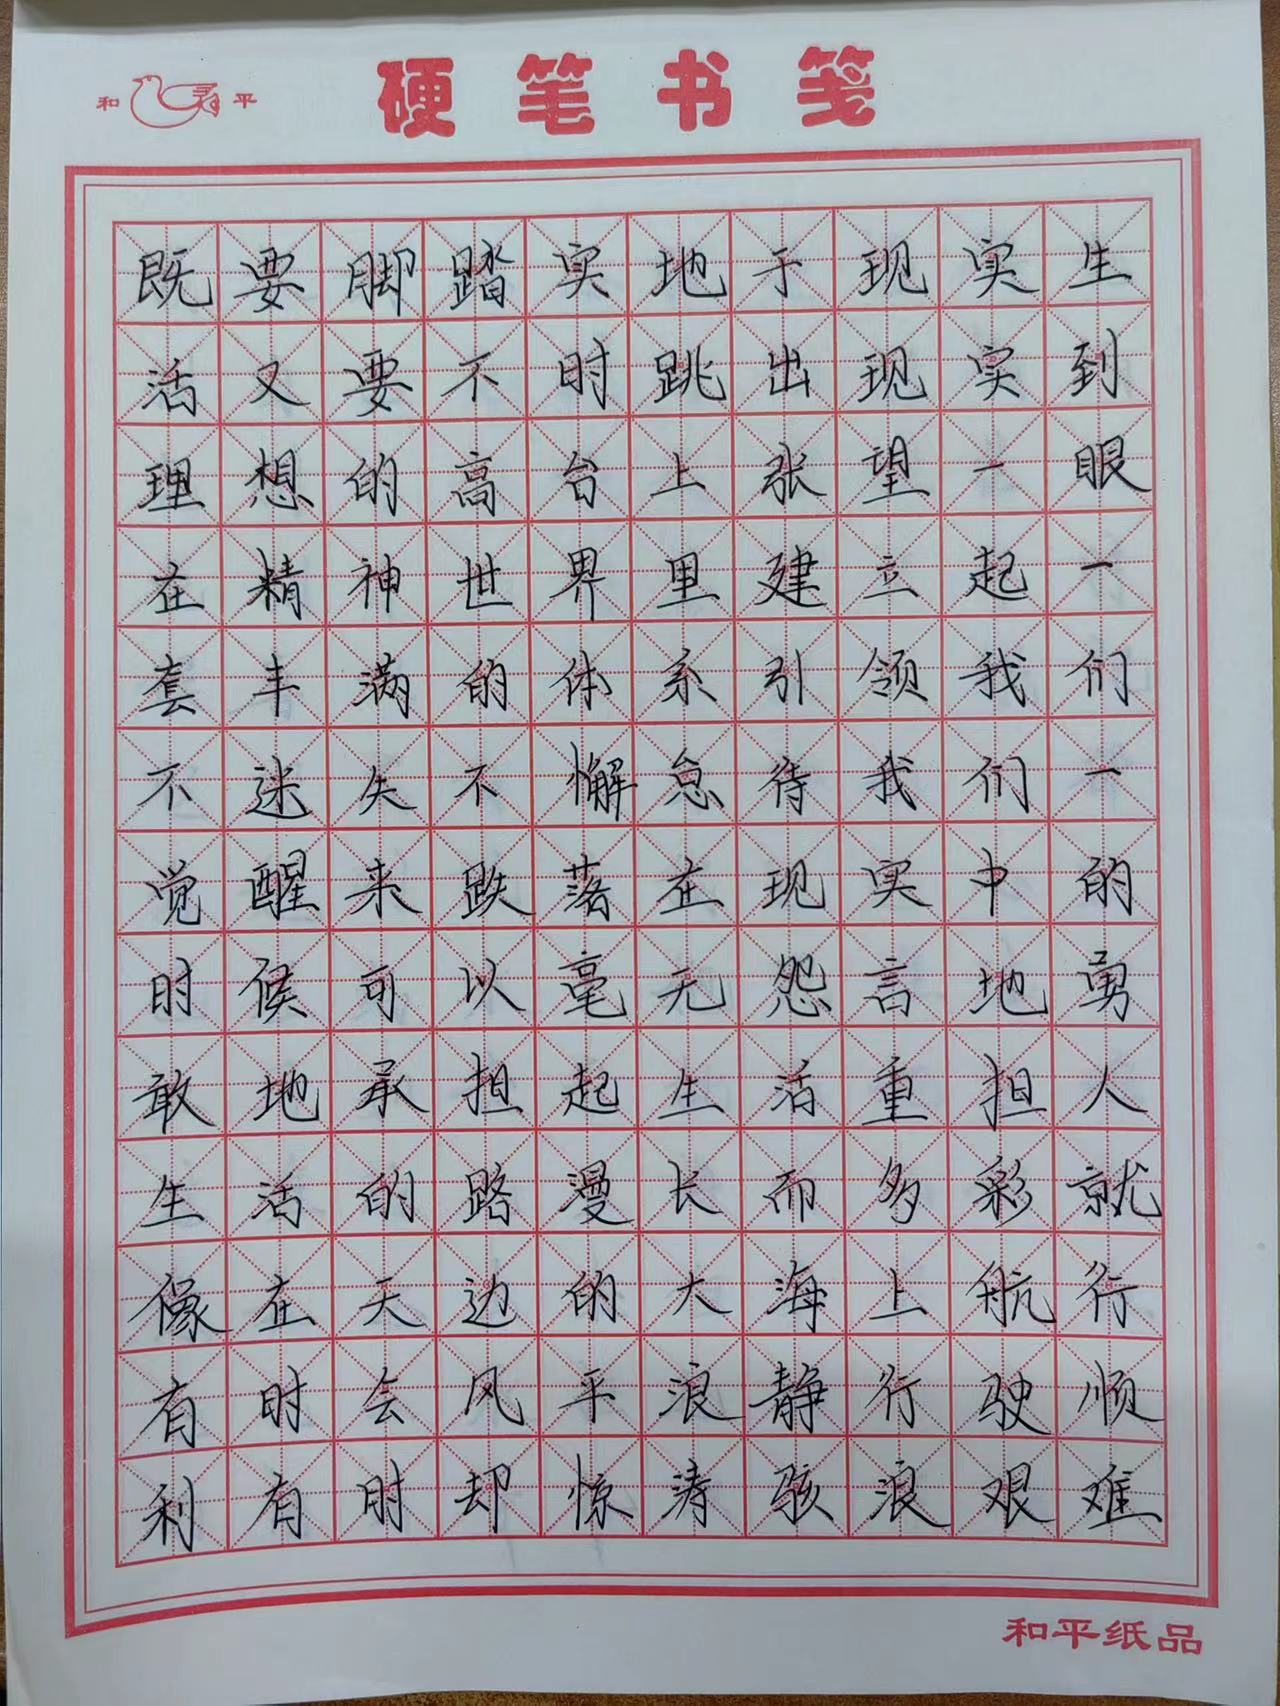 和平
硬笔书笺
既要脚踏实地于现实生
活又要不时跳出现实到
理想的高台上张望一眼
在精神世界里建立起一
套丰满的体系引领我们
不迷失不懈怠待我们一
觉醒来跌落在现实中的
时候可以毫无怨言地勇
敢地承担起生活重担人
生活的路漫长而多彩就
像在天边的大海上航行
有时会风平浪静行驶顺
利有时却惊涛骇浪艰难
和平纸品